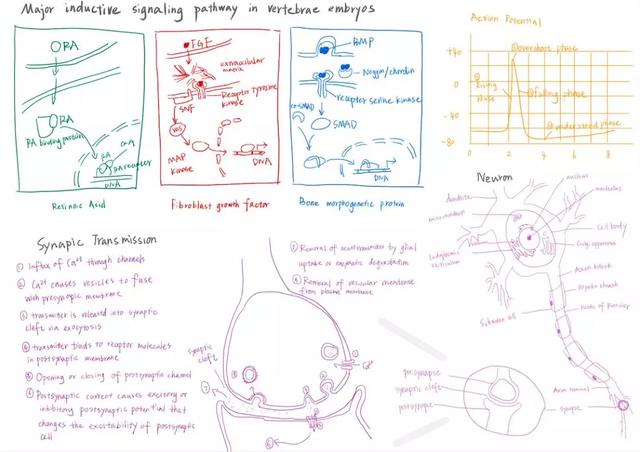 Major inductive signaling pathway in vertebrae embryos
RA
RA
RA binding protein
RA
co-A
RA receptor
DNA
Retinoic Acid
FGF
extracellular
matrix
Receptor tyrosine
kinase
SNF
RAS
MAP
kinase
DNA
Fibroblast growth factor
BMP
Noggin/chordin
receptor serine kinase
co-SMAD
SMAD
DNA
Bone morphogenetic protein
Action Potential
+40
0
-40
-80
0
2
4
6
8
Rising
phase
overshoot phase
falling phase
undershoot phase
Neuron
nucleus
nucleolus
dendrite
mitochondrion
cell body
Golgi apparatus
Endoplasmic
reticulum
Axon hillock
Myelin sheath
Node of Ranvier
Schwann cell
Axon terminal
synapse
presynapse
synaptic cleft
postsynapse
Synapic Transmission
① Influx of Ca²⁺ through channels
② Ca²⁺ causes vesicles to fuse
with presynapic membrane
③ transmitter is released into synaptic
cleft via exocytosis
④ transmitter binds to receptor molecules
in postsynaptic membrane
⑤ Opening or closing of postsynaptic channel
⑥ Postsynaptic current causes excitory or
inhibitory postsynaptic potential that
changes the excitability of postsynaptic
cell
⑦ Removal of neurotransmitter by glial
uptake or enzymatic degradation
⑧ Removal of vesicular membrane
from plasma membrane
synaptic
cleft
Ca²⁺